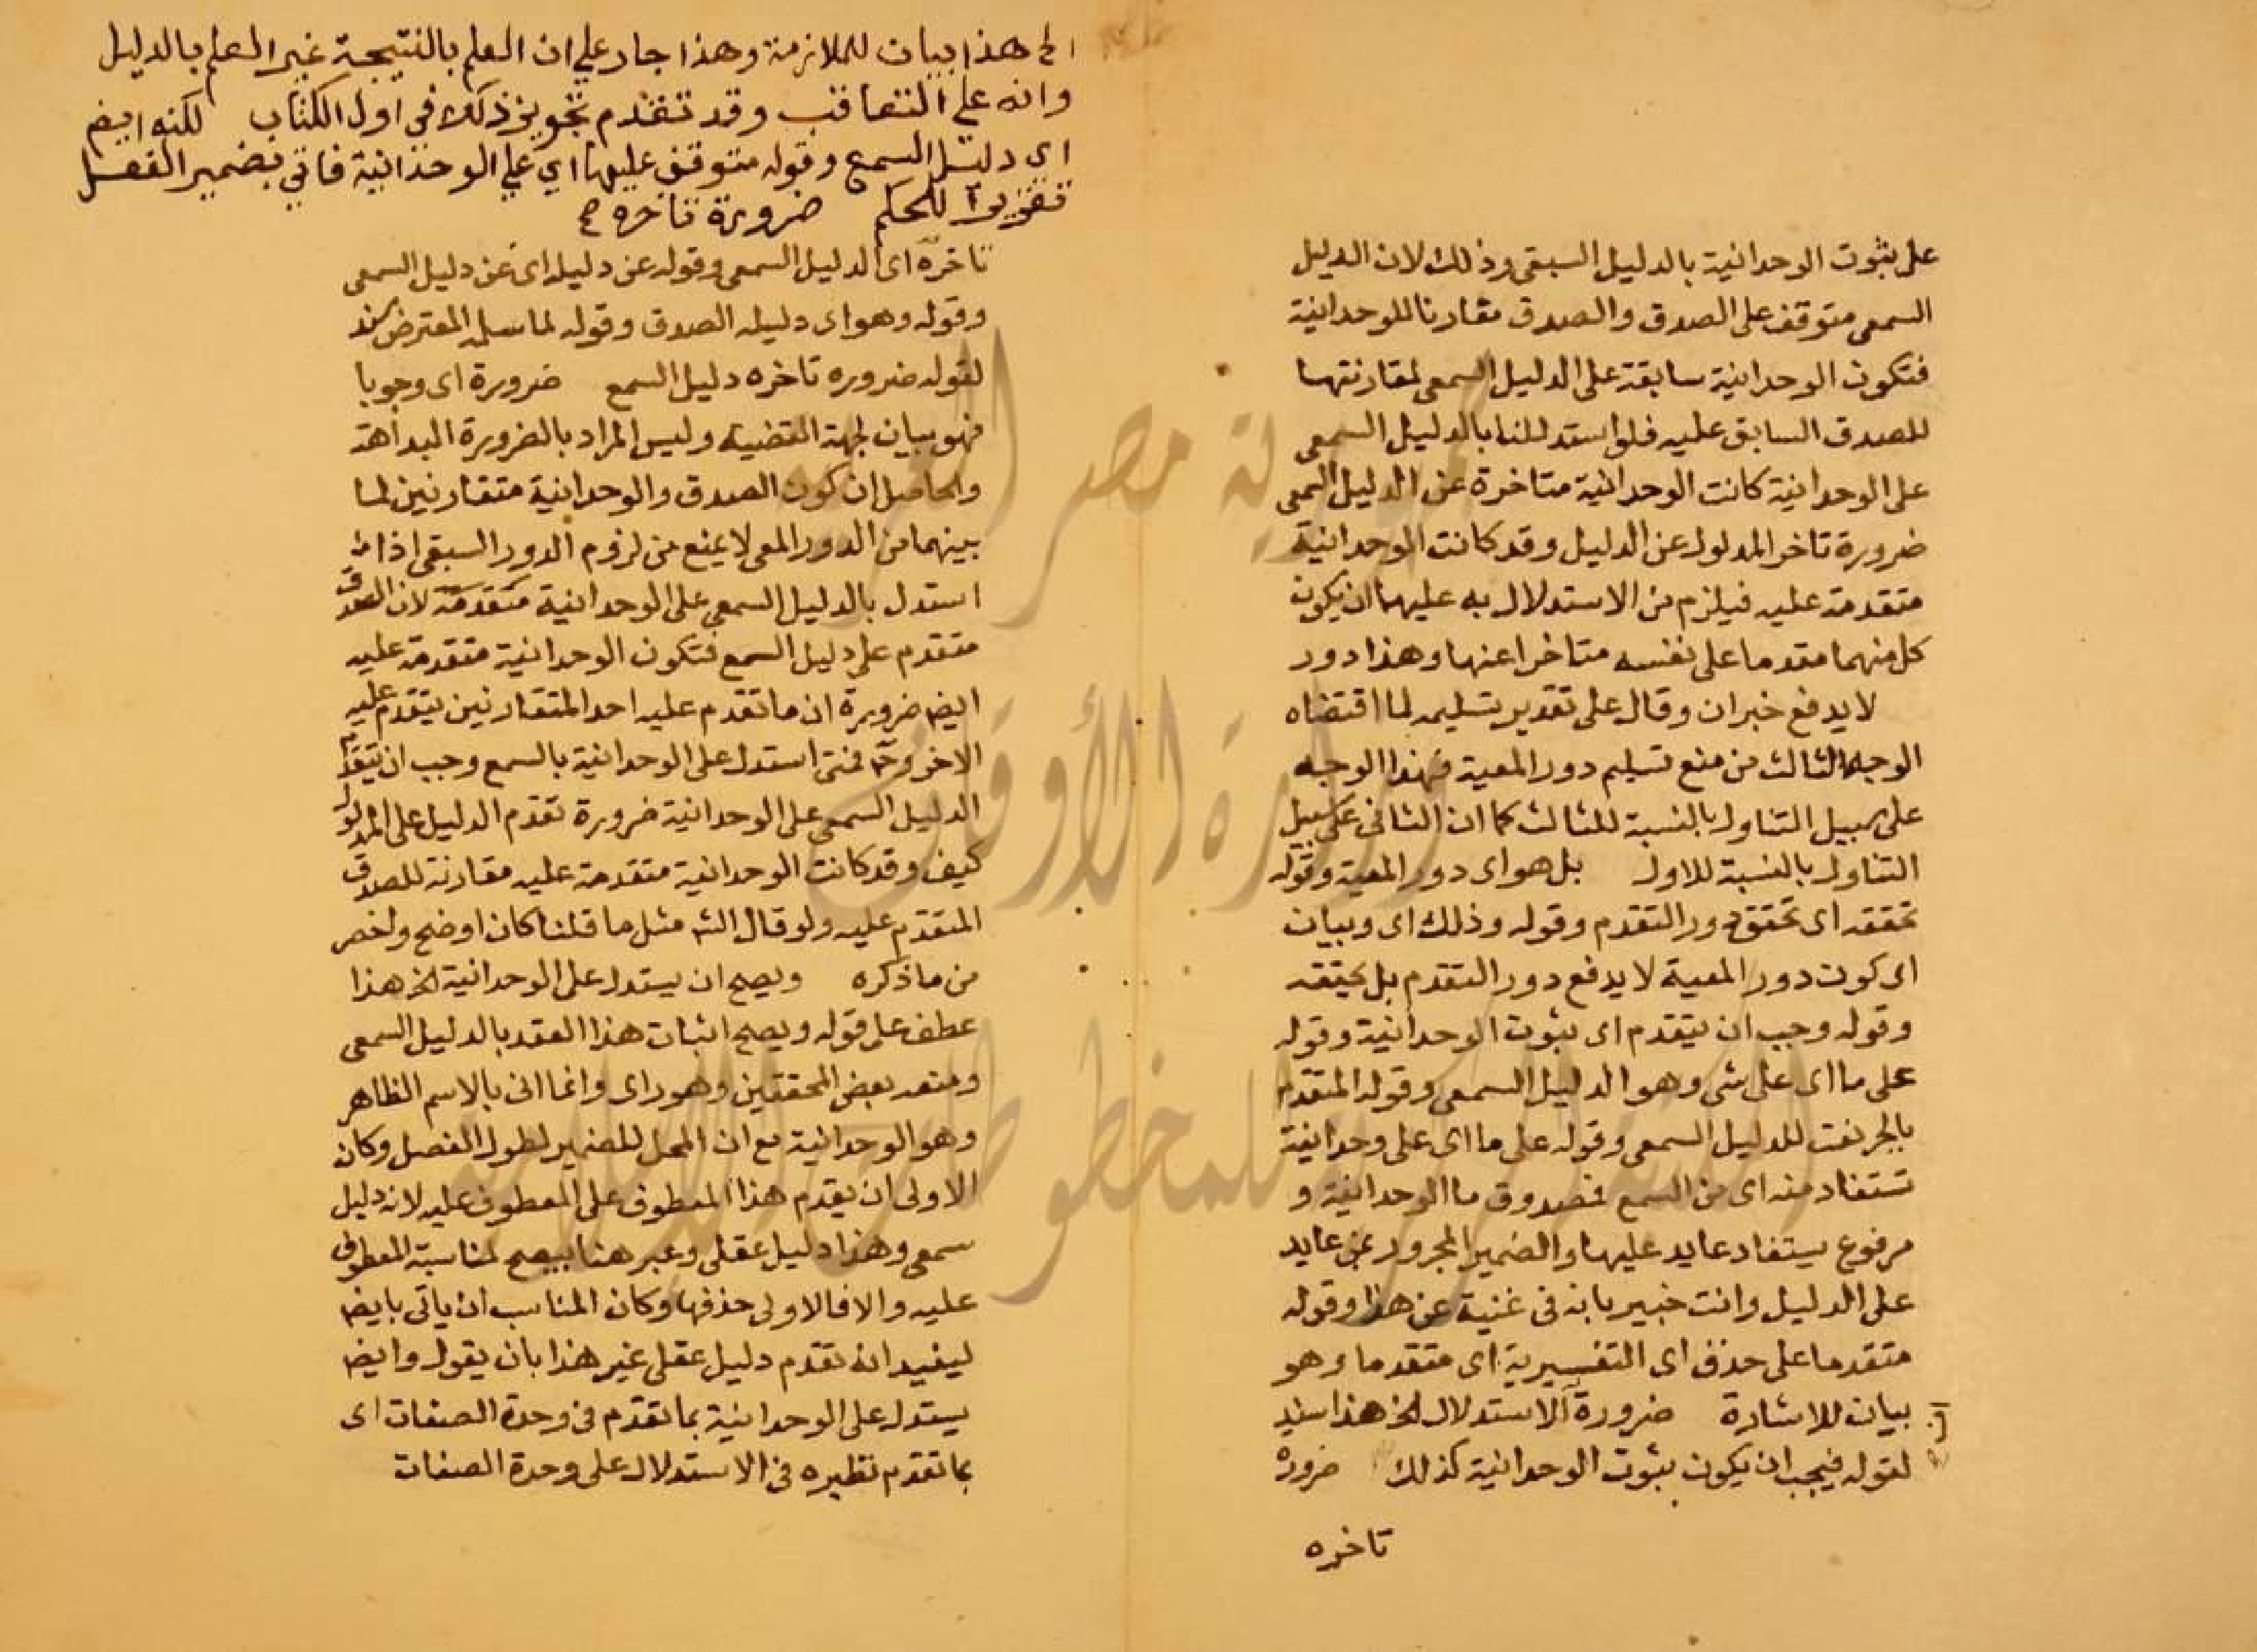 على ثبوت الوحدانية بالدليل السبقى وذلك لان الدليل
السمعى متوقف على الصدق والصدق مقارنا للوحدانية
فتكون الوحدانية سابقة على الدليل السمعى لمقارنتها
للصدق السابق عليه فلو استدللنا بالدليل السمعى
على الوحدانية كانت الوحدانية متاخرة عن الدليل السمعى
ضرورة تاخر المدلول عن الدليل وقد كانت الوحدانية
متقدمة عليه فيلزم من الاستدلال به عليهما ان يكون
كل منهما مقدما على نفسه متاخرا عنها وهذا دور
لا يدفع خبران وقال على تقدير تسليمه لما اقتضاه
الوجه الثالث من منع تسليم دور المعية فهذا الوجه
على سبيل التناول بالنسبة للثالث كما ان الثانى على سبيل
التناول بالنسبة للاول بل هو اى دور المعية وقوله
تحققه اى تحقق دور التقدم وقوله وذلك اى وبيان
اى كون دور المعية لا يدفع دور التقدم بل يحققه
وقوله وجب ان يتقدم اى ثبوت الوحدانية وقوله
على ما اى على شى وهو الدليل السمعى وقوله المتقدم
بالجر نعت للدليل السمعى وقوله على ما اى على وحدانية
تستفاد منه اى من السمع فمصدوق ما الوحدانية و
مرفوع يستفاد عايد عليها والضمير المجرور بمن عايد
على الدليل وانت خبير بانه فى غنية عن هذا وقوله
متقدما على حذف اى التفسيرية اى متقدما وهو
بيان للاشارة ضرورة الاستدلال الخ هذا سند
لقوله فيجب ان يكون ثبوت الوحدانية كذلك ضرورة
تاخره
الخ هذا بيان للملازمة وهذا جار على ان العلم بالنتيجة غير العلم بالدليل
وانه على التعاقب وقد تقدم تجويز ذلك فى اول الكتاب لكنه ايضا
اى دليل السمع وقوله متوقف عليها اى على الوحدانية فاتى بضمير الفصل
تقوية للحكم ضرورة تاخره
تاخره اى الدليل السمعى وقوله عن دليله اى عن دليل السمعى
وقوله وهو اى دليله الصدق وقوله لما سلمه المعترض سند
لقوله ضروره تاخره دليل السمع ضرورة اى وجوبا
فهو بيان لجهة القضية وليس المراد بالضرورة البداهة
والحاصل ان كون الصدق والوحدانية متقارنين لما
بينهما من الدور المعى لا يمنع من لزوم الدور السبقى اذا
استدل بالدليل السمعى على الوحدانية متقدمة لان الصدق
متقدم على دليل السمع فتكون الوحدانية متقدمة عليه
ايضا ضرورة ان ما تقدم عليه احد المتقارنين يتقدم عليه
الاخر وح فمتى استدل على الوحدانية بالسمع وجب ان يتقدم
الدليل السمعى على الوحدانية ضرورة تقدم الدليل على المدلول
كيف وقد كانت الوحدانية متقدمة عليه مقارنة للصدق
المتقدم عليه ولو قال الش مثل ما قلنا كان اوضح واخصر
من ما ذكره ويصح ان يستدل على الوحدانية الخ هذا
عطف على قوله ويصح اثبات هذا العقد بالدليل السمعى
ومنعه بعض المحققين وهو راى وانما اتى بالاسم الظاهر
وهو الوحدانية مع ان المحل للضمير لطول الفصل وكان
الاولى ان يقدم هذا المعطوف على المعطوف عليه لانه دليل
سمعى وهذا دليل عقلى وعبر هنا بيصح لمناسبة المعطوف
عليه والا فالاولى حذفها وكان المناسب ان ياتى بايضا
ليفيد انه تقدم دليل عقلى غير هذا بان يقول وايضا
يستدل على الوحدانية بما تقدم فى وحدة الصفات اى
بما تقدم نظيره فى الاستدلال على وحدة الصفات